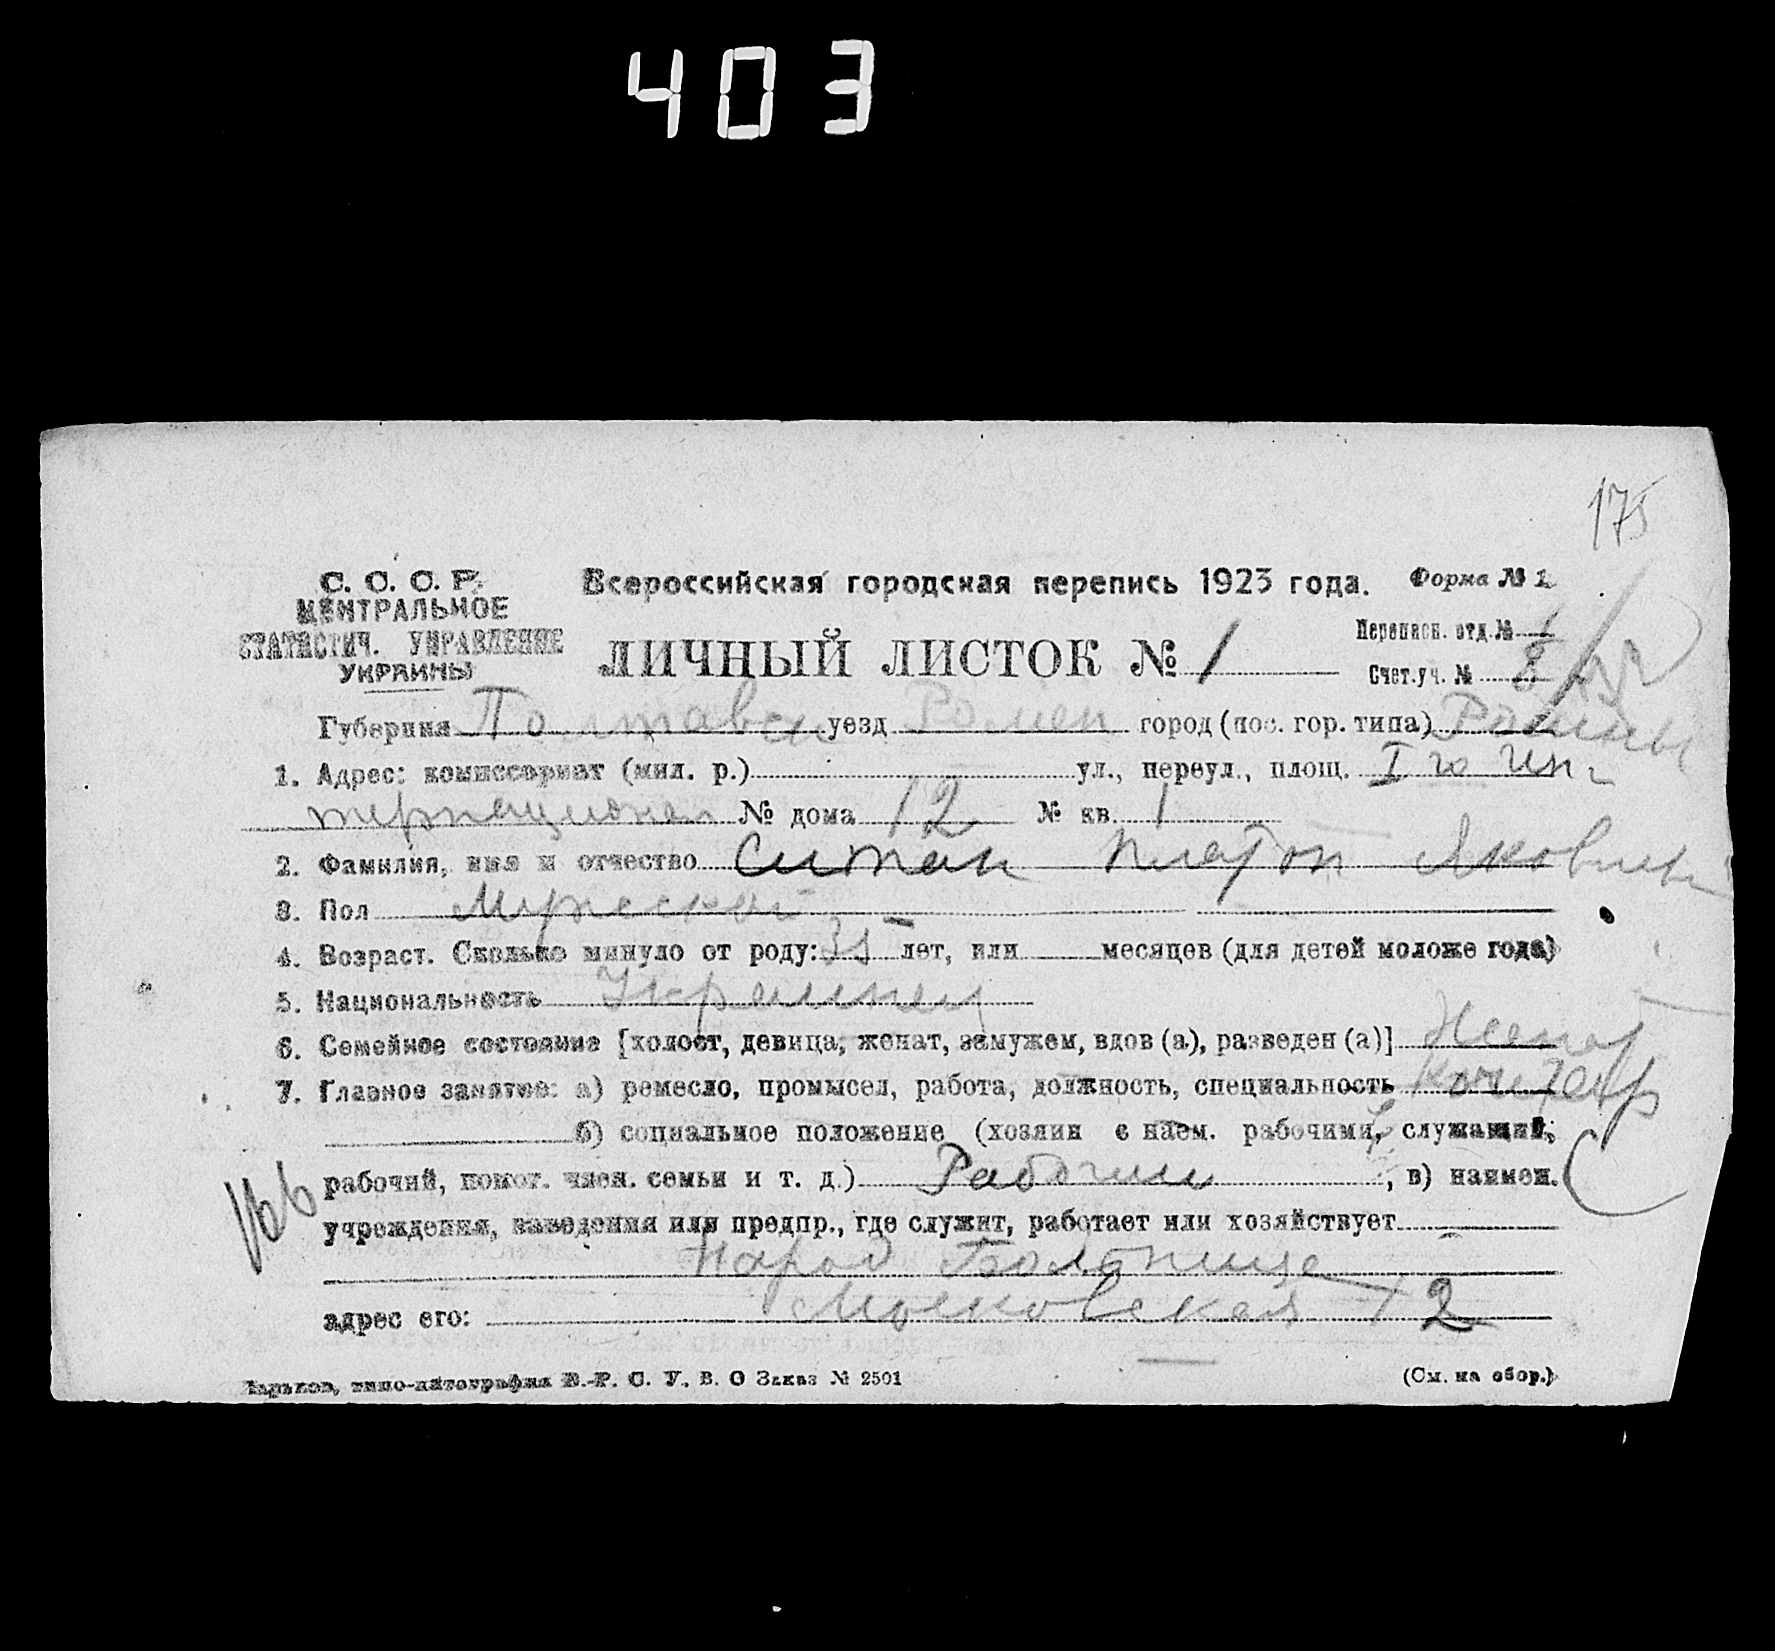 403
175
С. С. С. Р.
ЦЕНТРАЛЬНОЕ
СТАТИСТИЧ. УПРАВЛЕНИЕ
УКРАИНЫ
Всероссийская городская перепись 1923 года. Форма № 1
ЛИЧНЫЙ ЛИСТОК № 1
Переписн. отд. № 1
Счет. уч. № 8
Губерния Полтавск уезд Ромен город (пос. гор. типа) Ромны
1. Адрес: комиссариат (мил. р.) ул., переул., площ. I го Ин-
тернационал № дома 12 № кв. 1
2. Фамилия, имя и отчество Ситан Платон Яковлевич
3. Пол Мужской
4. Возраст. Сколько минуло от роду: 35 лет, или месяцев (для детей моложе года)
5. Национальность Украинец
6. Семейное состояние [холост, девица, женат, замужем, вдов (а), разведен (а)] Женат
7. Главное занятие: а) ремесло, промысел, работа, должность, специальность
б) социальное положение (хозяин с наем. рабочими, служащий,
рабочий, помог. член. семьи и т. д.) Рабочий, в) наимен.
166
учреждения, заведения или предпр., где служит, работает или хозяйствует
Народ Больница
адрес его: Московская 12
Харьков, типо-литография В. О Заказ № 2501 (См. на обор.)